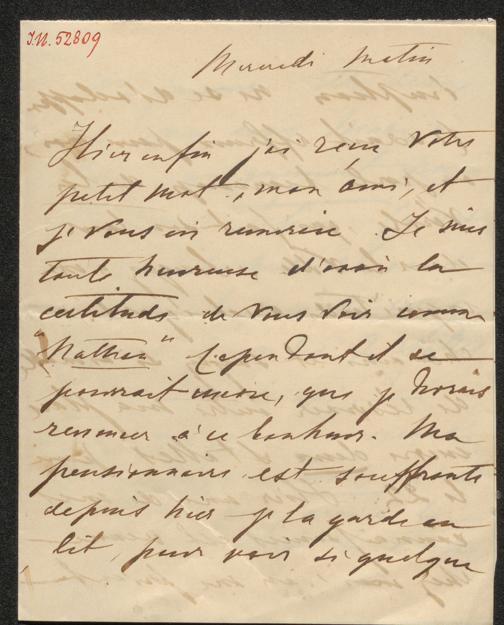 I.N. 52809
Mercredi Matin
Hier enfin j'ai reçu votre
petit mot, mon ami, et
je vous en remercie. Je suis
toute heureuse d'avoir la
certitude de vous voir comme
"Nathan" Cependant il se
pourrait encore, que je devrais
renoncer à ce bonheur. Ma
pensionnaire est souffrante
depuis hier je la garde au
lit, pour voir si quelque